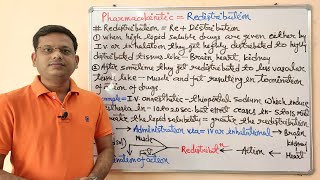 Pharmacokinetic = Redistribution
Redistribution = Re + Distribution
① When high lipid soluble drugs are given either by
I.V or inhalation they get highly distributed to highly
distributed tissues like - Brain heart, kidney
② After sometime they get redistributed to less vascular
tissue like - Muscle and fat resulting in termination
of action of drugs
Example = I.V anaesthetic - thiopental sodium which induce
in 10 to 20 sec but effect cease in 5-15 min
the lipid solubility = greater the redistribution
Administration via = I.V or inhalational → Brain
kidney
Heart
Muscle
Fat
Redistribution
Action
of action